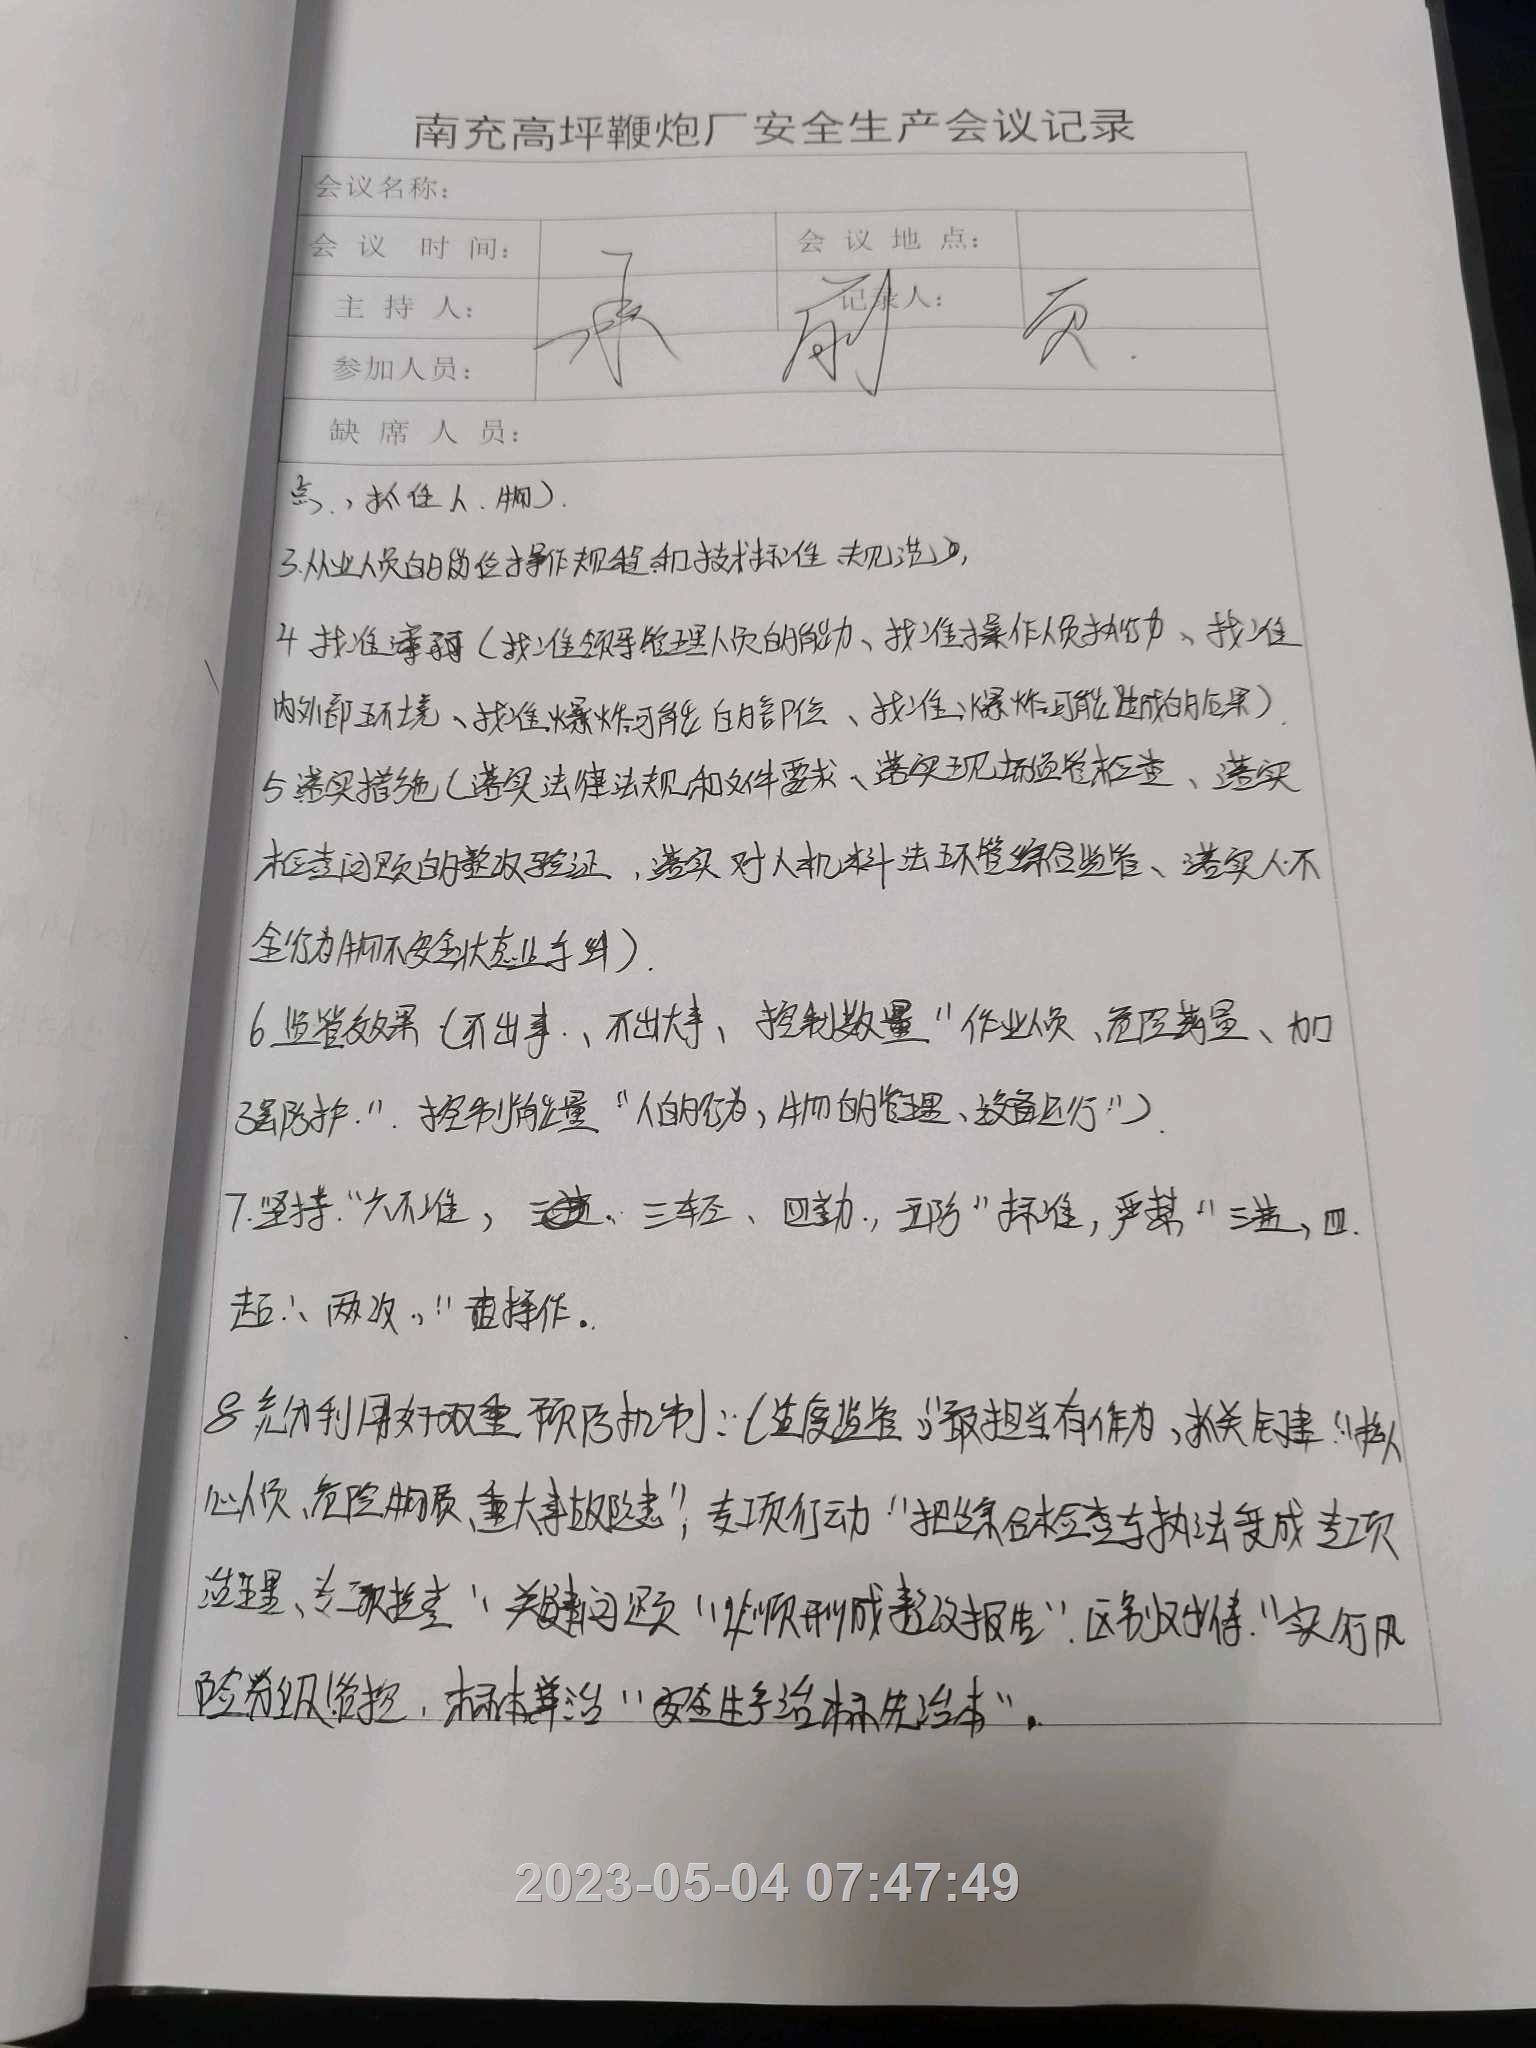 南充高坪鞭炮厂安全生产会议记录
会议名称：
会 议 时 间： 会 议 地 点：
主 持 人： 记录人：
承 前 页.
参加人员：
缺 席 人 员：
点、抓住人、物).
3.从业人员的岗位操作规程和技术标准
4 找准薄弱(找准领导管理人员的能力、找准操作人员执行力、找准
内外部环境、找准爆炸可能的部位、找准爆炸可能造成的后果).
5 落实措施(落实法律法规和文件要求、落实现场监管检查、落实
检查问题的整改验证,落实对人机料法环管综合监管、落实人不
全行为物不安全状态).
6 监管效果(不出事、不出大事、控制数量"作业人员、危险药量、加
强防护".控制能量"人的行为,物的管理、设备运行").
7.坚持"六不准, 三轻、四勤、五防"标准,严禁"三违、四
超、两次"操作.
8 充分利用好双重预防机制:(监管"敢担当有作为,抓关键"核
心人员、危险物质、重大事故隐患",专项行动"把综合检查与执法变成专项
治理、专项检查"关键问题"形成整改报告".区别对待."实行风
险分级管控,标本兼治"安全生产治标先治本".
2023-05-04 07:47:49